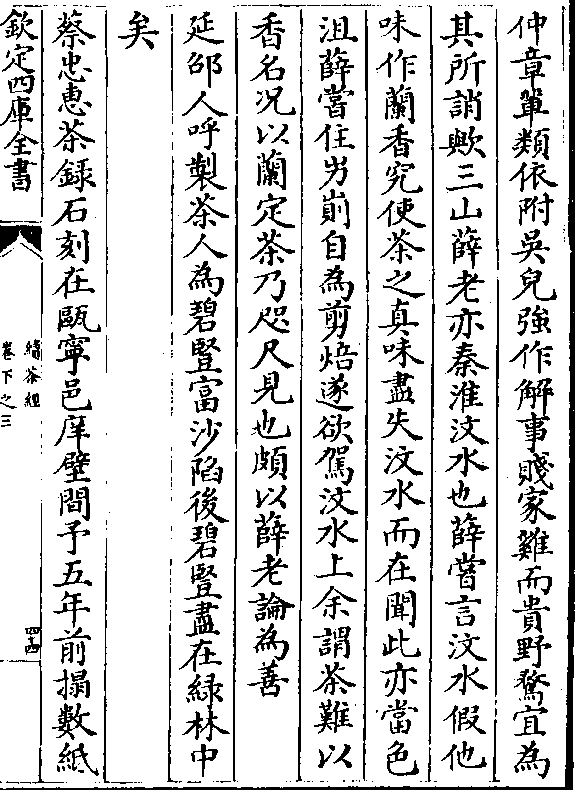 仲章軰類依附吳兒強作解事賤家雞而貴野鶩宜為
其所誚歟三山薛老亦秦淮汶水也薛嘗言汶水假他
味作蘭香究使茶之真味盡失汶水而在聞此亦當色
沮薛嘗住屴崱自為剪焙遂欲駕汶水上余謂茶難以
香名况以蘭定茶乃咫尺見也頗以薛老論為善
延邵人呼製茶人為碧豎富沙陷後碧豎盡在緑林中
矣
蔡忠惠茶録石刻在甌寧邑庠壁間予五年前搨數紙
欽定四庫全書
續茶經
卷下之三
四十四